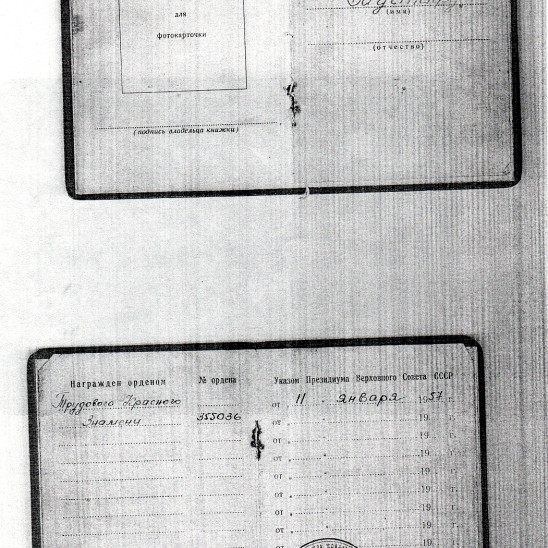 для
фотокарточки
(подпись владельца книжки)
(имя)
(отчество)
Награжден орденом № ордена Указом Президиума Верховного Совета СССР
Трудового Красного
Знамени 355036
от „ 11 " января 1957 г.
от „ " 19 г.
от „ " 19 г.
от „ " 19 г.
от „ " 19 г.
от „ " 19 г.
от „ " 19 г.
от „ 19 г.